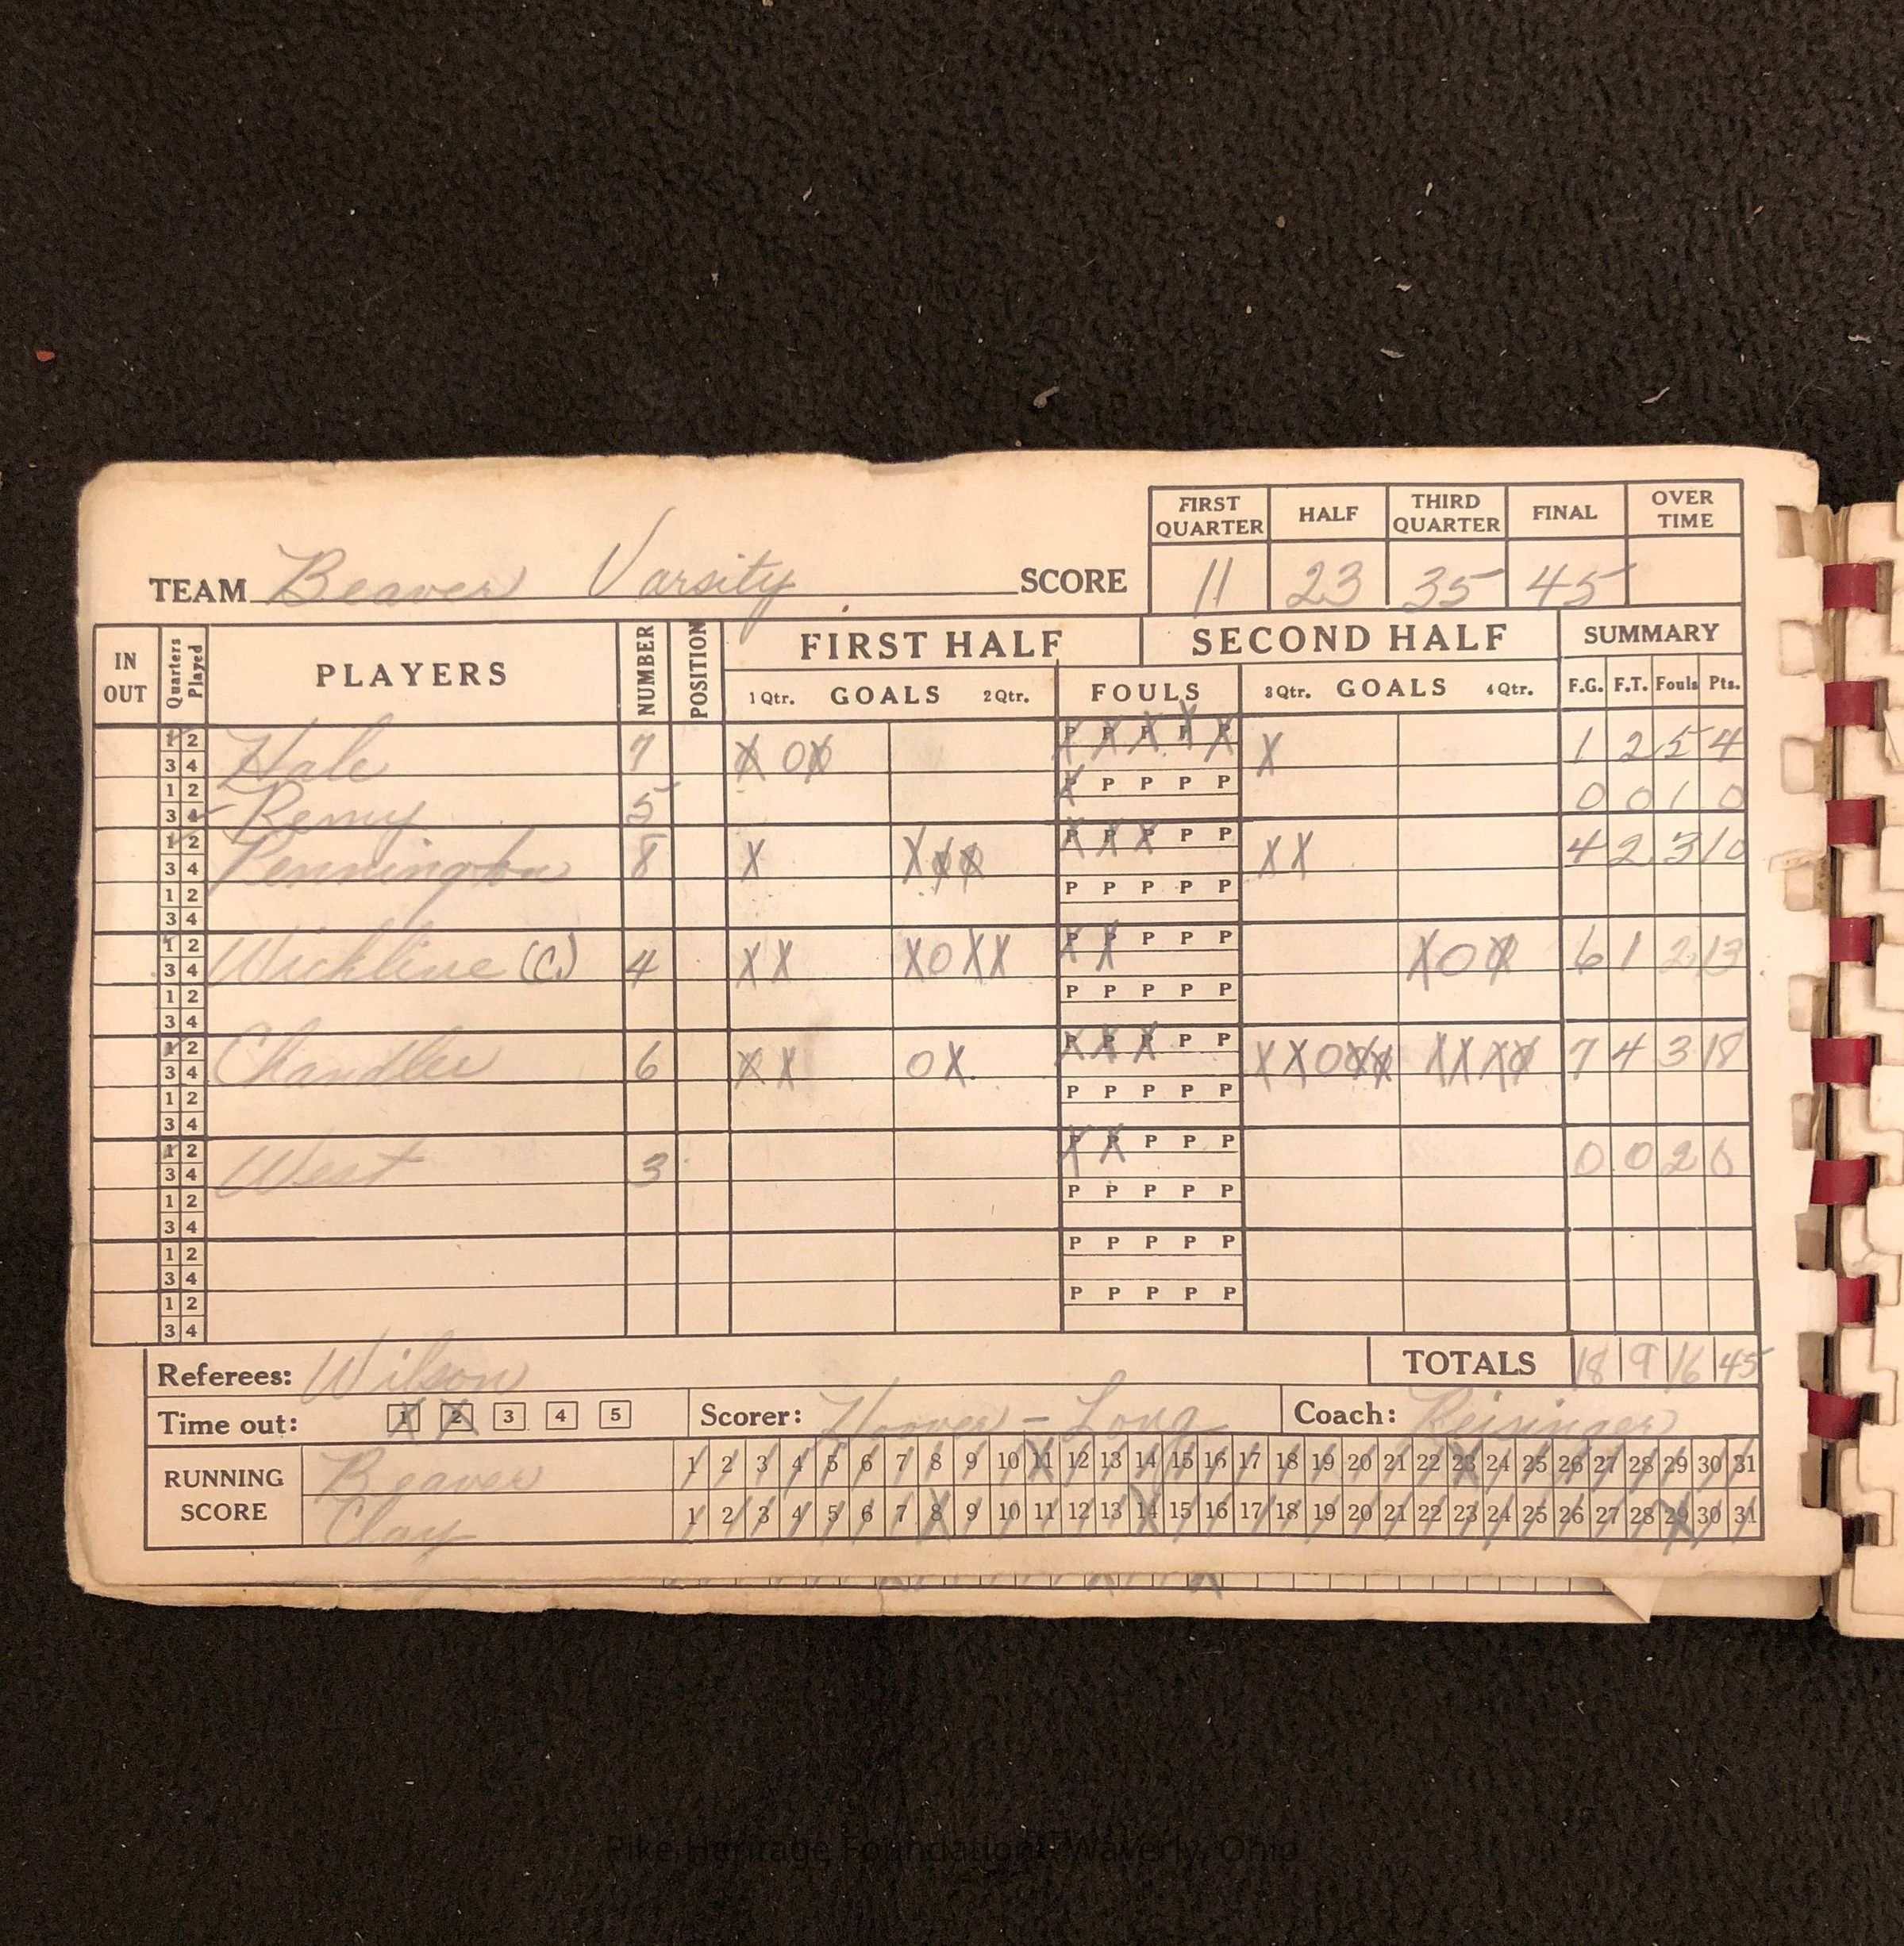 FIRST QUARTER HALF THIRD QUARTER FINAL OVER TIME
TEAM Beaver Varsity SCORE 11 23 35 45
IN OUT Quarters Played PLAYERS NUMBER POSITION FIRST HALF SECOND HALF SUMMARY
1 Qtr. GOALS 2 Qtr. FOULS 3 Qtr. GOALS 4 Qtr. F.G. F.T. Fouls Pts.
1 2 3 4 Hale 7 X OX P P P P P X 1 2 5 4
1 2 3 4 Remy 5 P P P P P 0 0 1 0
1 2 3 4 Pennington 8 X X P P P P P XX 4 2 3 10
1 2 3 4 P P P P P
1 2 3 4 Wickline (C.) 4 XX XOXX P P P P P XO 6 1 2 13
1 2 3 4 P P P P P
1 2 3 4 Chandler 6 XX OX P P P P P XXO XXX 7 4 3 18
1 2 3 4 P P P P P
1 2 3 4 West 3 P P P P P 0 0 2 0
1 2 3 4 P P P P P
1 2 3 4 P P P P P
1 2 3 4 P P P P P
Referees: Wilson TOTALS 18 9 16 45
Time out: 1 2 3 4 5 Scorer: Hoover - Long Coach: Reisinger
RUNNING SCORE
Beaver 1 2 3 4 5 6 7 8 9 10 11 12 13 14 15 16 17 18 19 20 21 22 23 24 25 26 27 28 29 30 31
Clay 1 2 3 4 5 6 7 8 9 10 11 12 13 14 15 16 17 18 19 20 21 22 23 24 25 26 27 28 29 30 31
Pike Heritage Foundation, Waverly, Ohio